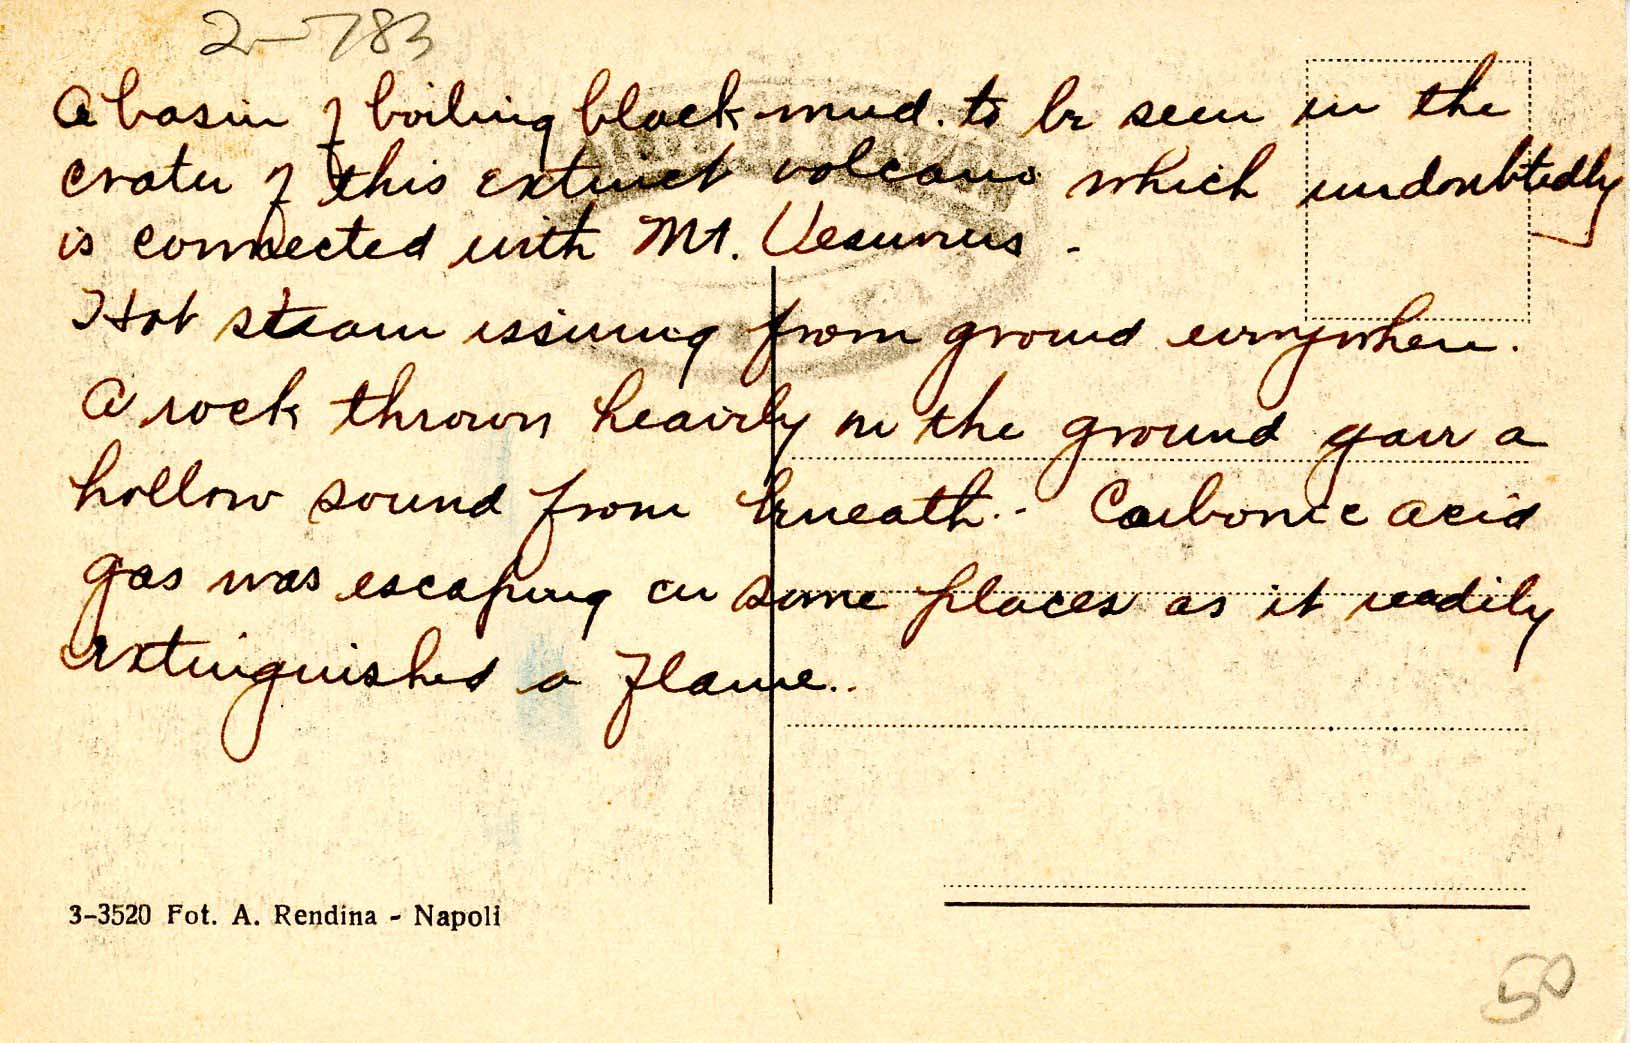 2-783
A basin of boiling black mud. to be seen in the
crater of this extinct volcano which undoubtedly
is connected with Mt. Vesuvius -
Hot steam issuing from ground everywhere.
A rock thrown heavily on the ground gave a
hollow sound from beneath.- Carbonic acid
gas was escaping in some places as it readily
extinguished a flame..
3-3520 Fot. A. Rendina - Napoli
50